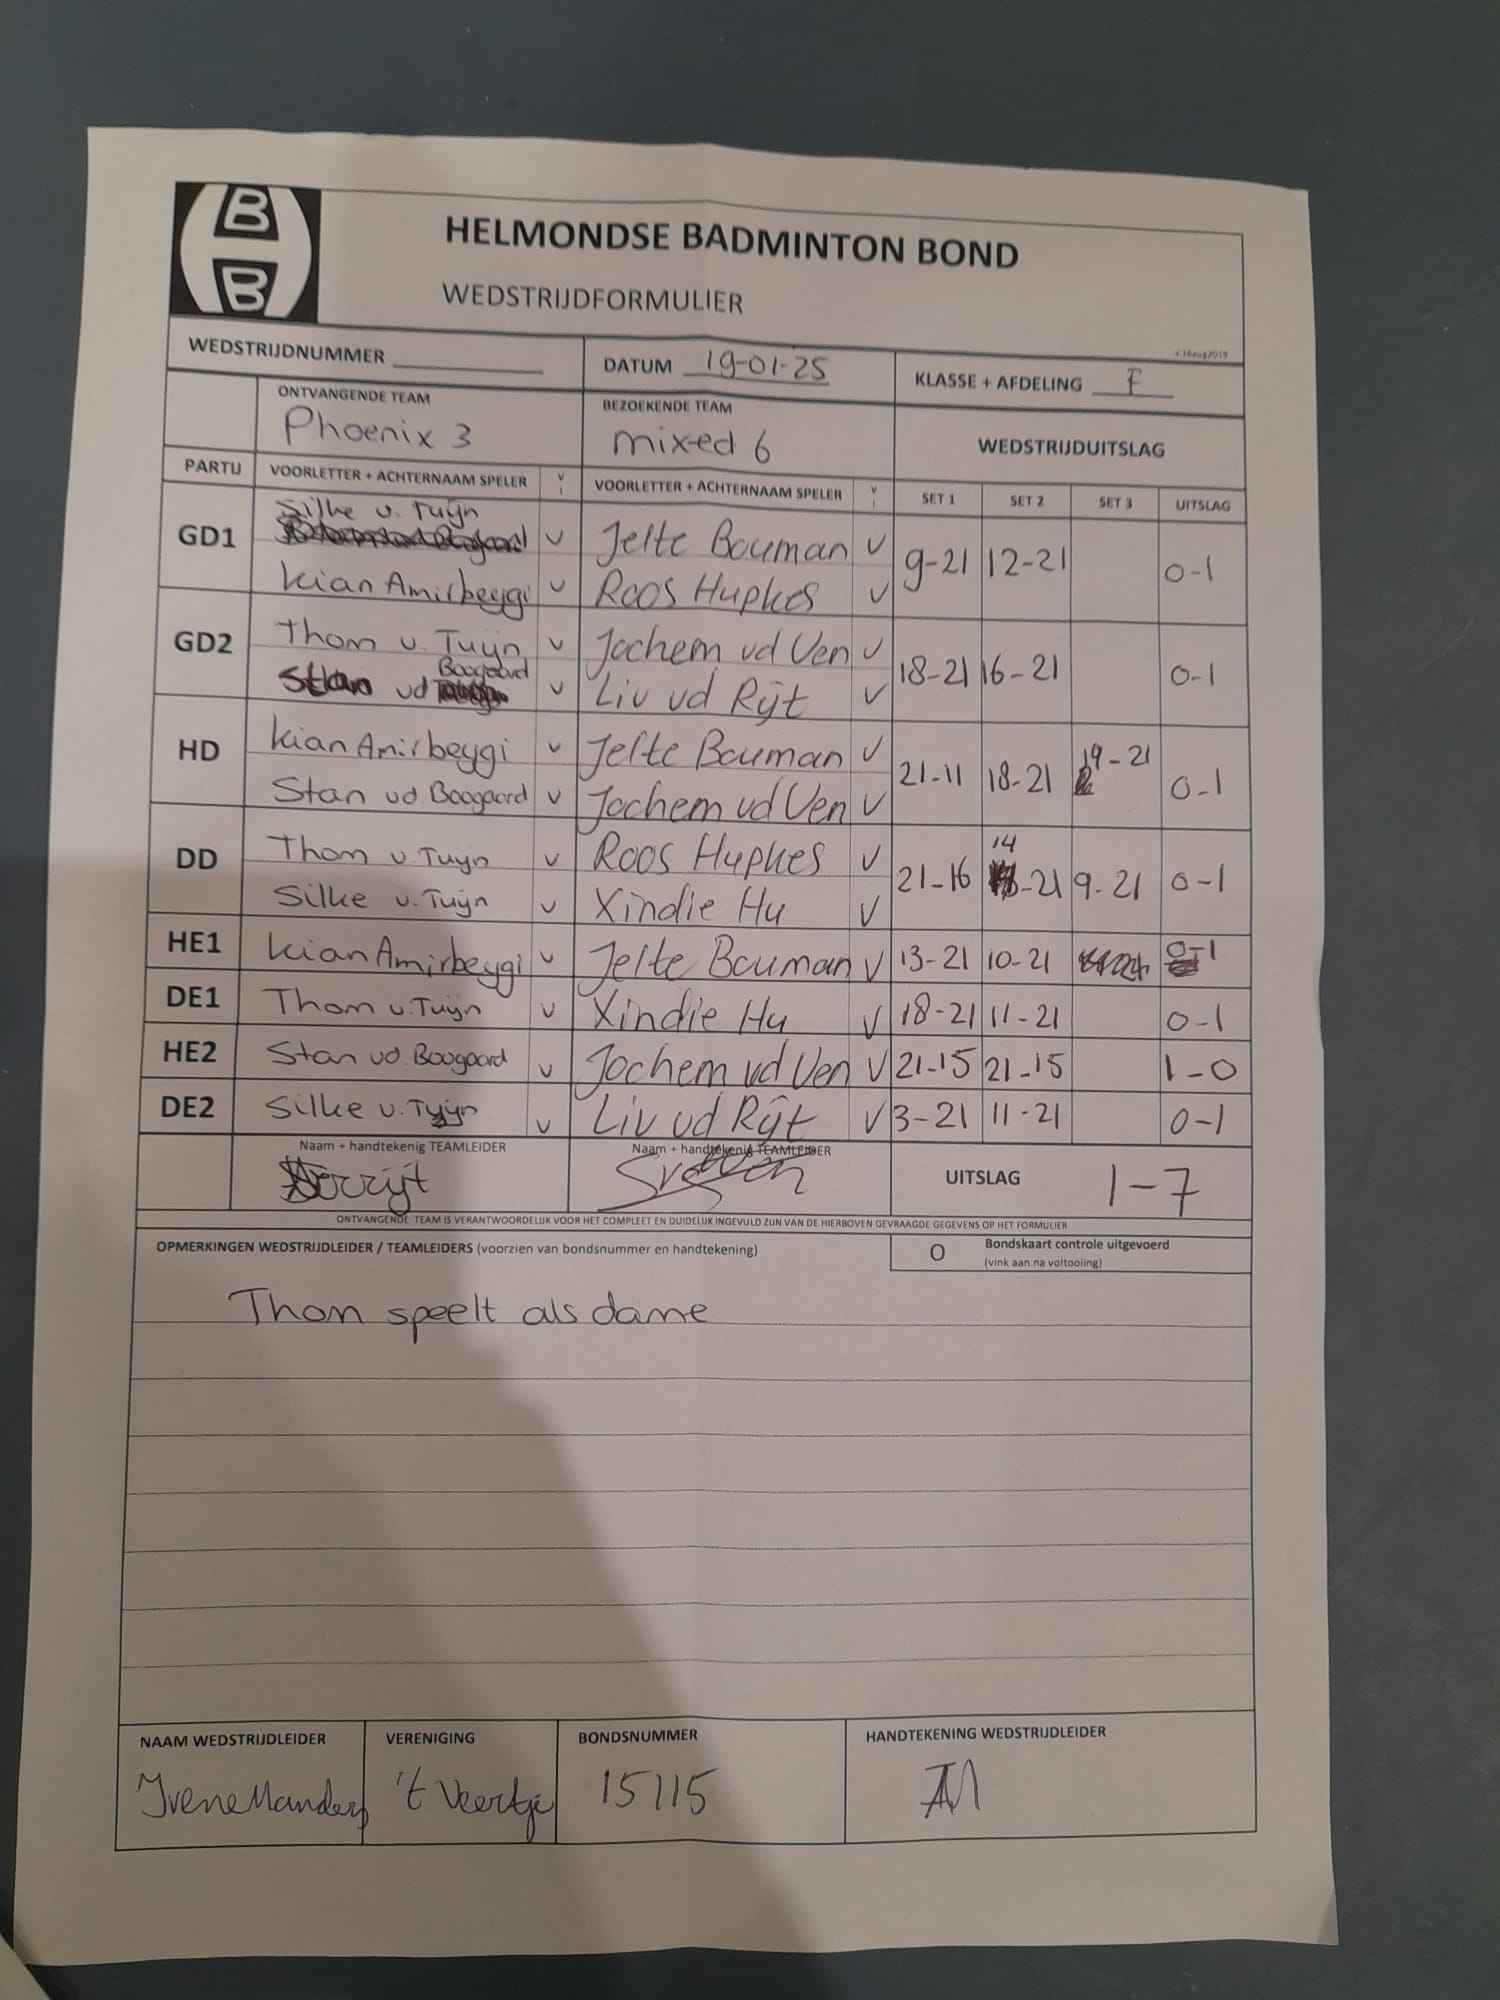 B
B
HELMONDSE BADMINTON BOND
WEDSTRIJDFORMULIER
WEDSTRIJDNUMMER
DATUM 19-01-25
KLASSE + AFDELING F
ONTVANGENDE TEAM
Phoenix 3
BEZOEKENDE TEAM
mixed 6
WEDSTRIJDUITSLAG
PARTIJ VOORLETTER + ACHTERNAAM SPELER V I VOORLETTER + ACHTERNAAM SPELER V I SET 1 SET 2 SET 3 UITSLAG
GD1 Silke v. Tuijn v Jelte Bouman v 9-21 12-21 0-1
Kian Amirbeygi v Roos Hupkes v
GD2 Thom v. Tuijn v Jochem vd Ven v 18-21 16-21 0-1
Stan vd Boogaard v Liv vd Rijt v
HD Kian Amirbeygi v Jelte Bouman v 21-11 18-21 19-21 0-1
Stan vd Boogaard v Jochem vd Ven v
DD Thom v. Tuijn v Roos Hupkes v 21-16 14-21 9-21 0-1
Silke v. Tuijn v Xindie Hu v
HE1 Kian Amirbeygi v Jelte Bouman v 13-21 10-21 0-1
DE1 Thom v. Tuijn v Xindie Hu v 18-21 11-21 0-1
HE2 Stan vd Boogaard v Jochem vd Ven v 21-15 21-15 1-0
DE2 Silke v. Tuijn v Liv vd Rijt v 3-21 11-21 0-1
Naam + handtekenig TEAMLEIDER
Naam + handtekenig TEAMLEIDER
UITSLAG 1-7
ONTVANGENDE TEAM IS VERANTWOORDELIJK VOOR HET COMPLEET EN DUIDELIJK INGEVULD ZIJN VAN DE HIERBOVEN GEVRAAGDE GEGEVENS OP HET FORMULIER
OPMERKINGEN WEDSTRIJDLEIDER / TEAMLEIDERS (voorzien van bondsnummer en handtekening)
O Bondskaart controle uitgevoerd
(vink aan na voltooiing)
Thom speelt als dame
NAAM WEDSTRIJDLEIDER VERENIGING BONDSNUMMER HANDTEKENING WEDSTRIJDLEIDER
Ivene Manders 't Veertje 15115